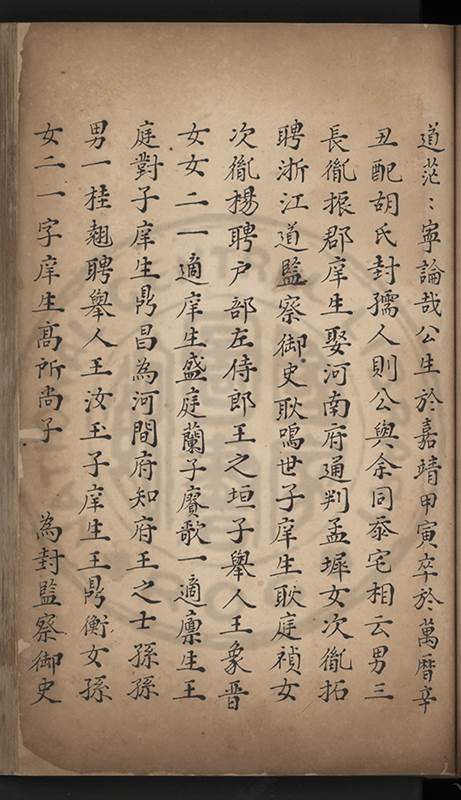 道茫〻寧論哉公生於嘉靖甲寅卒於萬曆辛
丑配胡氏封孺人則公與余同忝宅相云男三
長胤振郡庠生娶河南府通判孟墀女次胤拓
聘浙江道監察御史耿鳴世子庠生耿庭禎女
次胤楊聘戶部左侍郎王之垣子舉人王象晉
女女二一適庠生盛庭蘭子賡歌一適廩生王
庭對子庠生鼎昌為河間府知府王之士孫孫
男一桂翹聘舉人王汝玉子庠生王鼎衡女孫
女二一字庠生高所尚子 為封監察御史